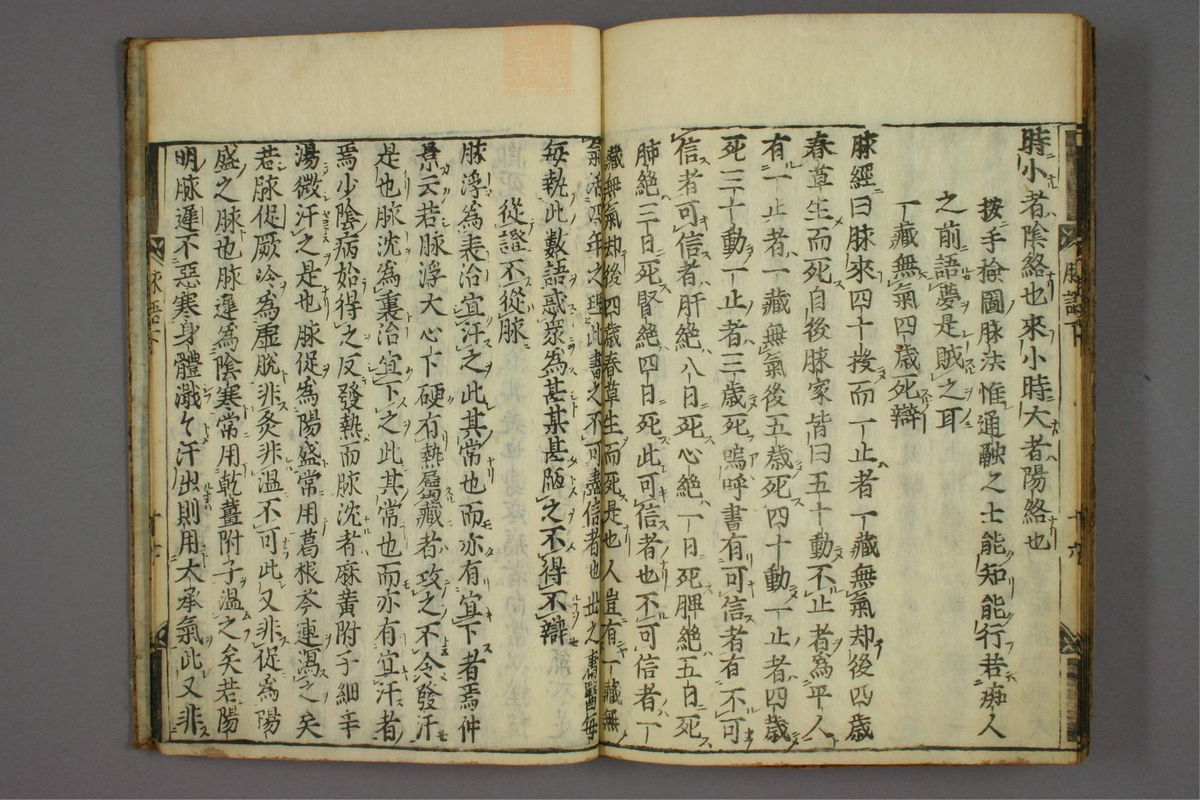 時小者陰絡也來小時大者陽絡也
按手撿圖脉法惟通融之士能知能行若痴人
之前語夢是賊之耳
一藏無氣四歲死辯
脉經曰脉來四十投而一止者一藏無氣却後四歲
春草生而死自後脉家皆曰五十動不止者為平人
有一止者一藏無氣後五歲死四十動一止者四歲
死三十動一止者三歲死嗚呼書有可信者有不可
信者可信者肝絕八日死心絕一日死脾絕五日死
肺絕三日死腎絕四日死此可信者也不可信者一
藏無氣却後四歲春草生而死是也人豈有一藏無
氣活四年之理此書之不可盡信者也世之庸醫每
每執此數語惑眾為甚某甚陋之不得不辯
從證不從脉
脉浮為表治宜汗之此其常也而亦有宜下者焉仲
景云若脉浮大心下硬有熱屬藏者攻之不令發汗
是也脉沈為裏治宜下之此其常也而亦有宜汗者
焉少陰病始得之反發熱而脉沈者麻黃附子細辛
湯微汗之是也脉促為陽盛常用葛根芩連瀉之矣
若脉促厥冷為虛脫非灸非溫不可此又非促為陽
盛之脉也脉遲為陰寒常用乾薑附子溫之矣若陽
明脉遲不惡寒身體濈々汗出則用大承氣此又非
脉語下
十六
脉語下
十七